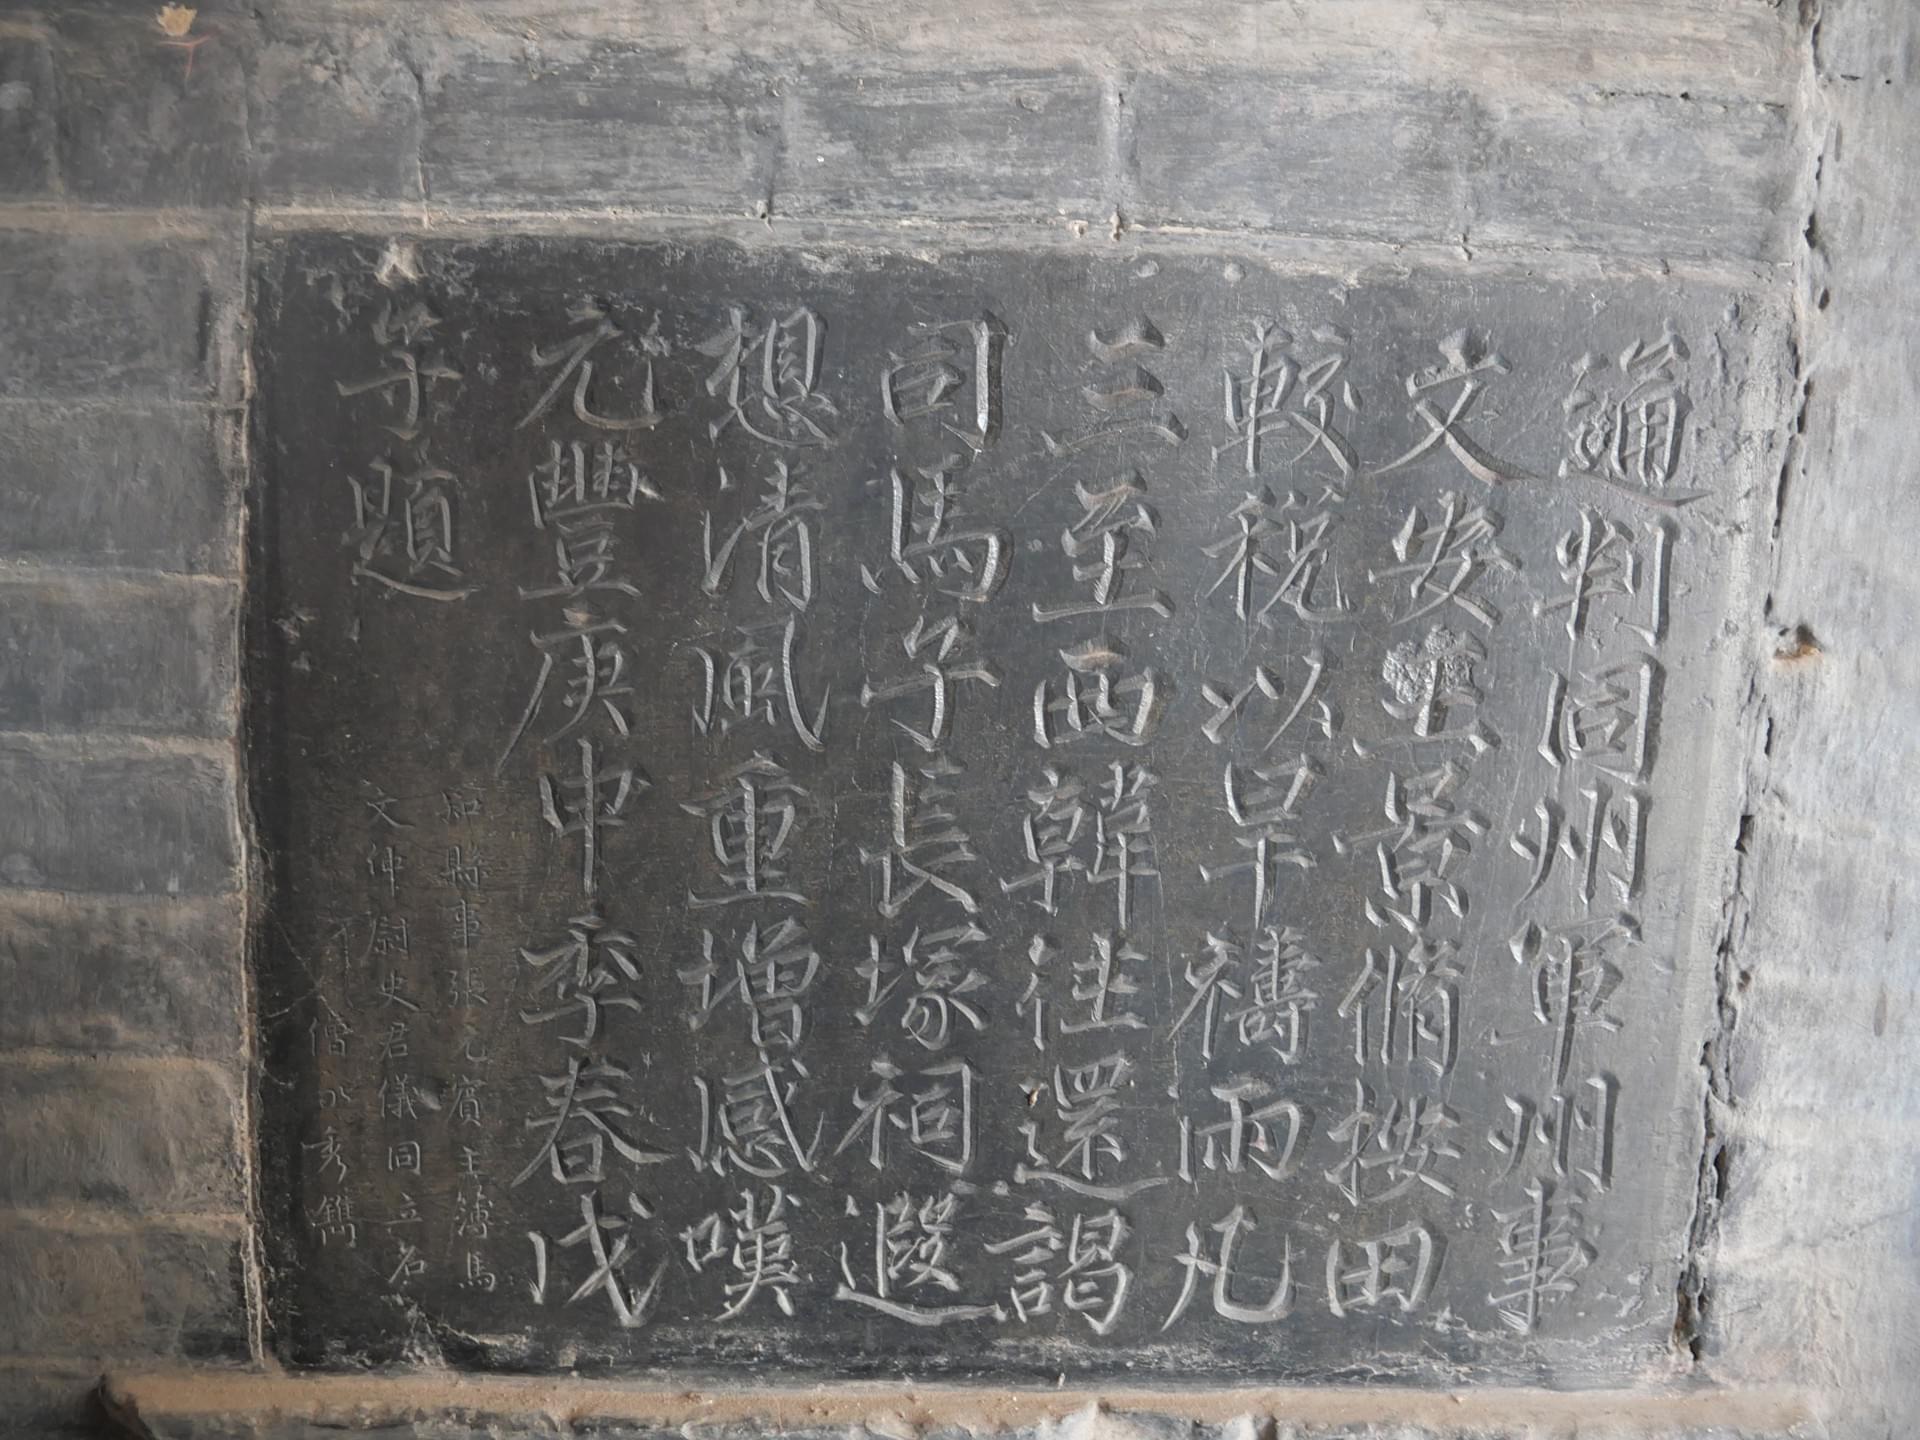 通判同州軍州事
文安王景脩按田
較稅以旱禱雨凡
三至西韓往還謁
司馬子長塚祠遐
想清風重增感嘆
元豐庚申季春戊
午題
知縣事張元賓主簿馬
文仲尉史君儀同立石
僧 秀鐫